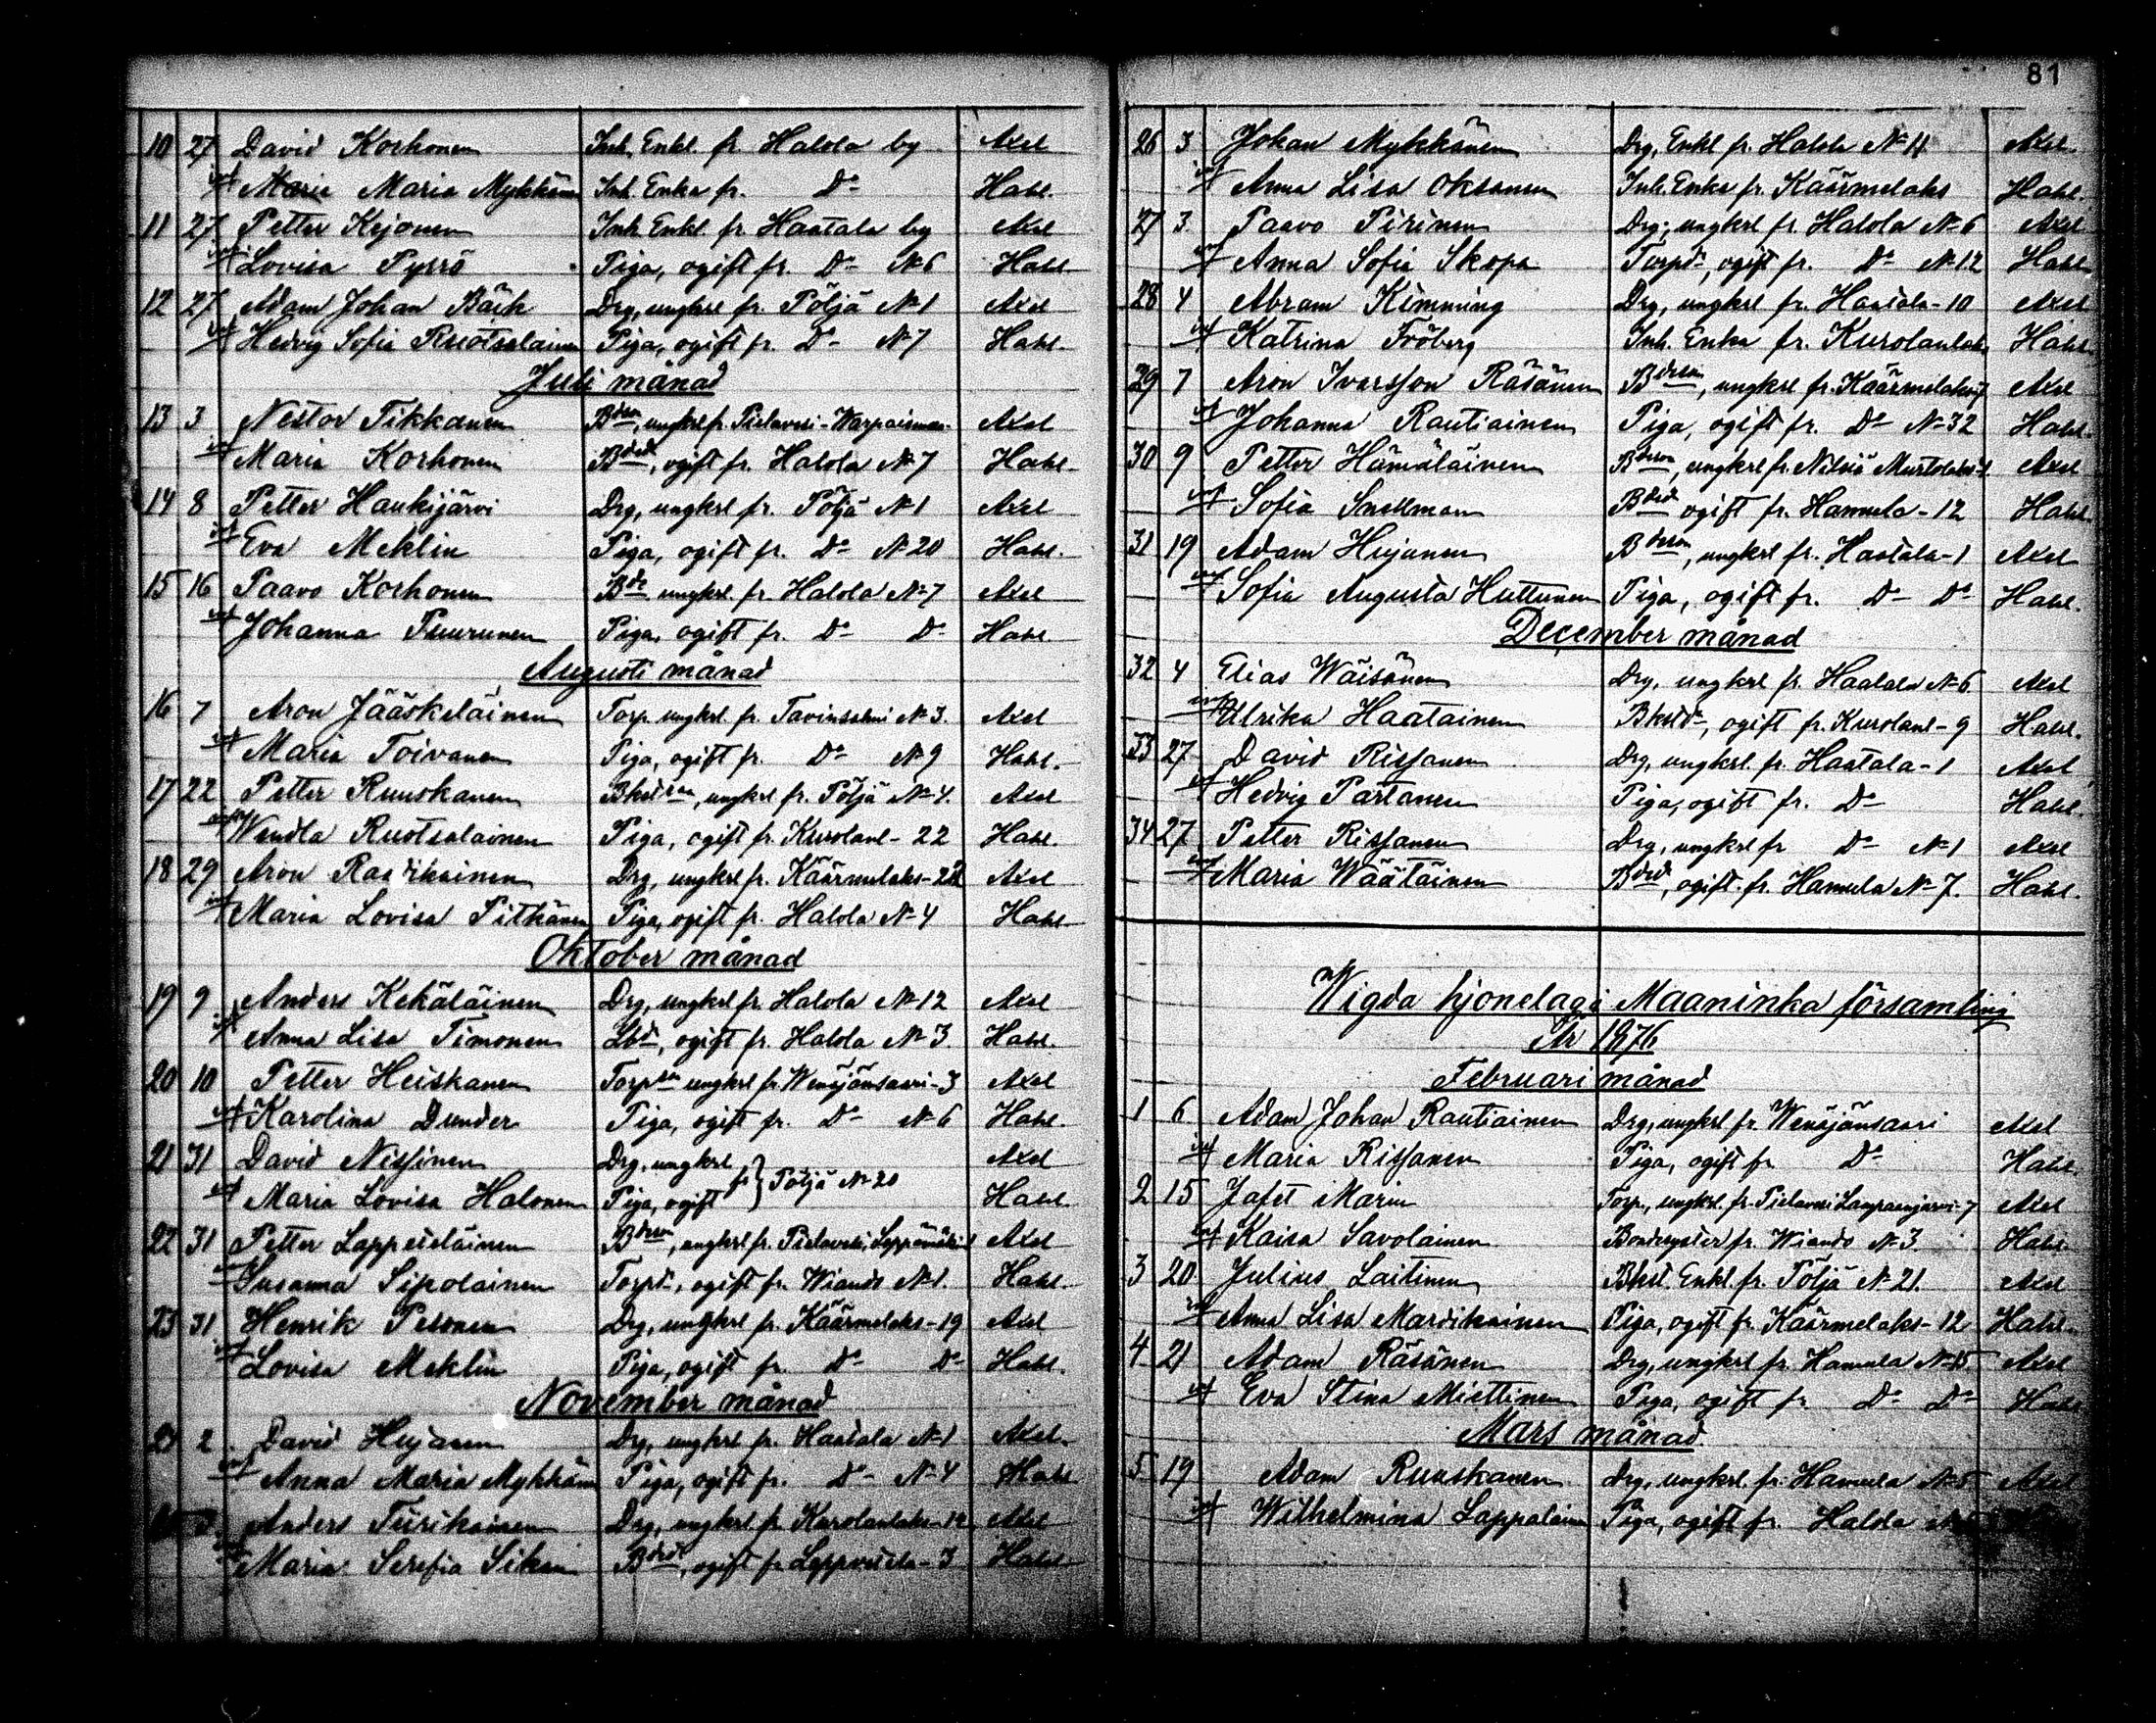 10 27 David Korhonen Inh. Enkl. fr. Halola by Axel
Maria Maria Mykkänen Inh. Enka fr. Do Hahl.
11 27 Petter Kejonen Inh. Enkl. fr. Haatala by Axel
Lovisa Pyrrö Piga, ogift fr. Do No 6 Hahl
12 27 Adam Johan Bäck Drg, ungkrl fr. Pöljä No 1 Axel
Hedvig Sofia Ruotsalainen Piga, ogift fr. Do No 7 Hahl.
Juli månad
13 3 Nestor Tikkanen Bdeson, ungkrl fr. Pielavesi - Axel
Maria Korhonen Bded, ogift fr. Halola No 7 Hahl.
14 8 Petter Haukijärvi Drg, ungkrl fr. Pöljä No 1 Axel
Eva Meklin Piga, ogift fr. Do No 20 Hahl.
15 16 Paavo Korhonen Bde ungkrl. fr. Halola No 7 Axel
Johanna Puurunen Piga, ogift fr. Do Do Hahl.
Augusti månad
16 7 Aron Jääskeläinen Torp. ungkrl. fr. Tavinsalmi No 3. Axel
Maria Toivanen Piga, ogift fr. Do No 9 Hahl.
17 22 Petter Ruuskanen Bhldson, ungkrl fr. Pöljä No 4. Axel
Wendla Ruotsalainen Piga, ogift fr. Kurolanl- 22 Hahl.
18 29 Aron Raatikainen Drg, ungkrl fr. Käärmelaks- Axel
Maria Lovisa Pitkänen Piga, ogift fr. Halola No 4 Hahl
Oktober månad
19 9 Anders Kekäläinen Drg, ungkrl fr. Halola No 12 Axel
Anna Lisa Timonen ogift fr. Halola No 3 Hahl.
20 10 Petter Heiskanen Torpson ungkrl fr. Wenäjänsaari-3 Axel
Karolina Dunder Piga, ogift fr. Do No 6 Hahl.
21 31 David Nissinen Drg, ungkrl Axel
fr } Pöljä No 20
Maria Lovisa Halonen Piga, ogift Hahl.
22 31 Petter Lappeteläinen Bdeson, ungkrl fr. Pielavesi, Axel
Susanna Sipolainen Torpd, ogift fr. Wianto No 1. Hahl.
23 31 Henrik Pesonen Drg, ungkrl fr. Käärmelaks- 19 Axel
Lovisa Meklin Piga, ogift fr. Do Do Hahl.
November månad
24 2 David Hujanen Drg, ungkrl fr. Haatala No 1 Axel
Anna Maria Mykkänen Piga, ogift fr. Do No 4 Hahl
Anders Turikainen Drg, ungkrl fr. Kurolanlaks- 12 Axel
Maria Serefia Bded, ogift fr. - 3 Hahl
81
26 3 Johan Mykkänen Drg, Enkl fr. Halola No 11 Axel
Anna Lisa Oksanen Inh. Enka fr. Käärmelaks Hahl.
27 3 Paavo Pirinen Drg, ungkrl fr. Halola No 6 Axel
Anna Sofia Skopa Torpd, ogift fr. Do No 12 Hahl.
28 4 Abram Kimming Drg, ungkrl fr. Haatala- 10 Axel
Katrina Fröberg Inh. Enka fr. Kurolanlaks Hahl.
29 7 Aron Ivarsson Räsänen Bdeson, ungkrl fr. Käärmelaks Axel
Johanna Rautiainen Piga, ogift fr. Do No 32 Hahl.
30 9 Petter Hämäläinen Bdeson, ungkrl fr. Nilsiä Murtolaks Axel
Sofia Snellman Bded ogift fr. Hamula - 12 Hahl.
31 19 Adam Hujanen Bdeson, ungkrl fr. Haatala- 1 Axel
Sofia Augusta Huttunen Piga, ogift fr. Do Do Hahl.
December månad
32 4 Elias Wäisänen Drg, ungkrl fr. Haatala No 6 Axel
Ulrika Haatainen Bhld, ogift fr. Kurolanl- 9 Hahl.
33 27 David Rissanen Drg, ungkrl. fr. Haatala- 1 Axel
Hedvig Partanen Piga, ogift fr. Do Hahl.
34 27 Petter Rissanen Drg, ungkrl fr Do No 1 Axel
Maria Wäätäinen Bded, ogift fr. Hamula No 7. Hahl.
Wigda hjonelag i Maaninka församling
År 1876
Februari månad
1 6 Adam Johan Rautiainen Drg, ungkrl fr. Wenäjänsaari Axel
Maria Rissanen Piga, ogift fr Do Hahl.
2 15 Jafet Marin Torp., ungkrl. fr. Pielavesi Lampaanjärvi-7 Axel
Kaisa Savolainen Bondesyster fr. Wianto No 3. Hahl.
3 20 Julius Laitinen Bhld. Enkl. fr. Pöljä No 21. Axel
Anna Lisa Mardikainen Piga, ogift fr. Käärmelaks- 12 Hahl.
4 21 Adam Räsänen Drg, ungkrl fr. Hamula No 15 Axel
Eva Stina Miettinen Piga, ogift fr. Do Do Hahl
Mars månad
5 19 Adam Ruuskanen Drg, ungkrl fr. Hamula No 5 Axel
Wilhelmina Lappalainen Piga, ogift fr. Halola